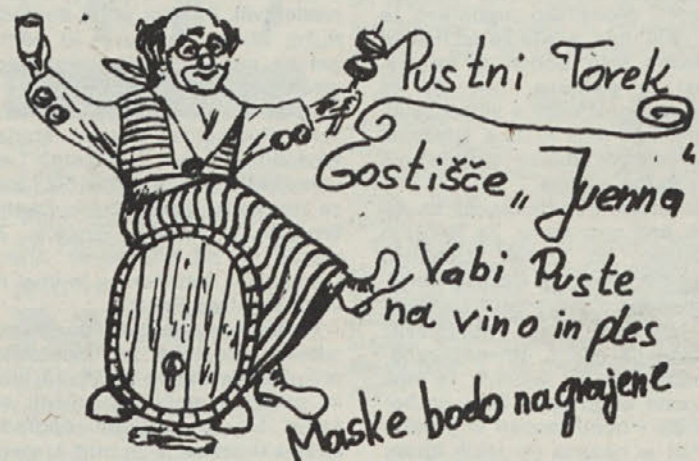 Pustni Torek
Gostišče „Juenna“
Vabi Puste
na vino in ples
Maske bodo nagrajene